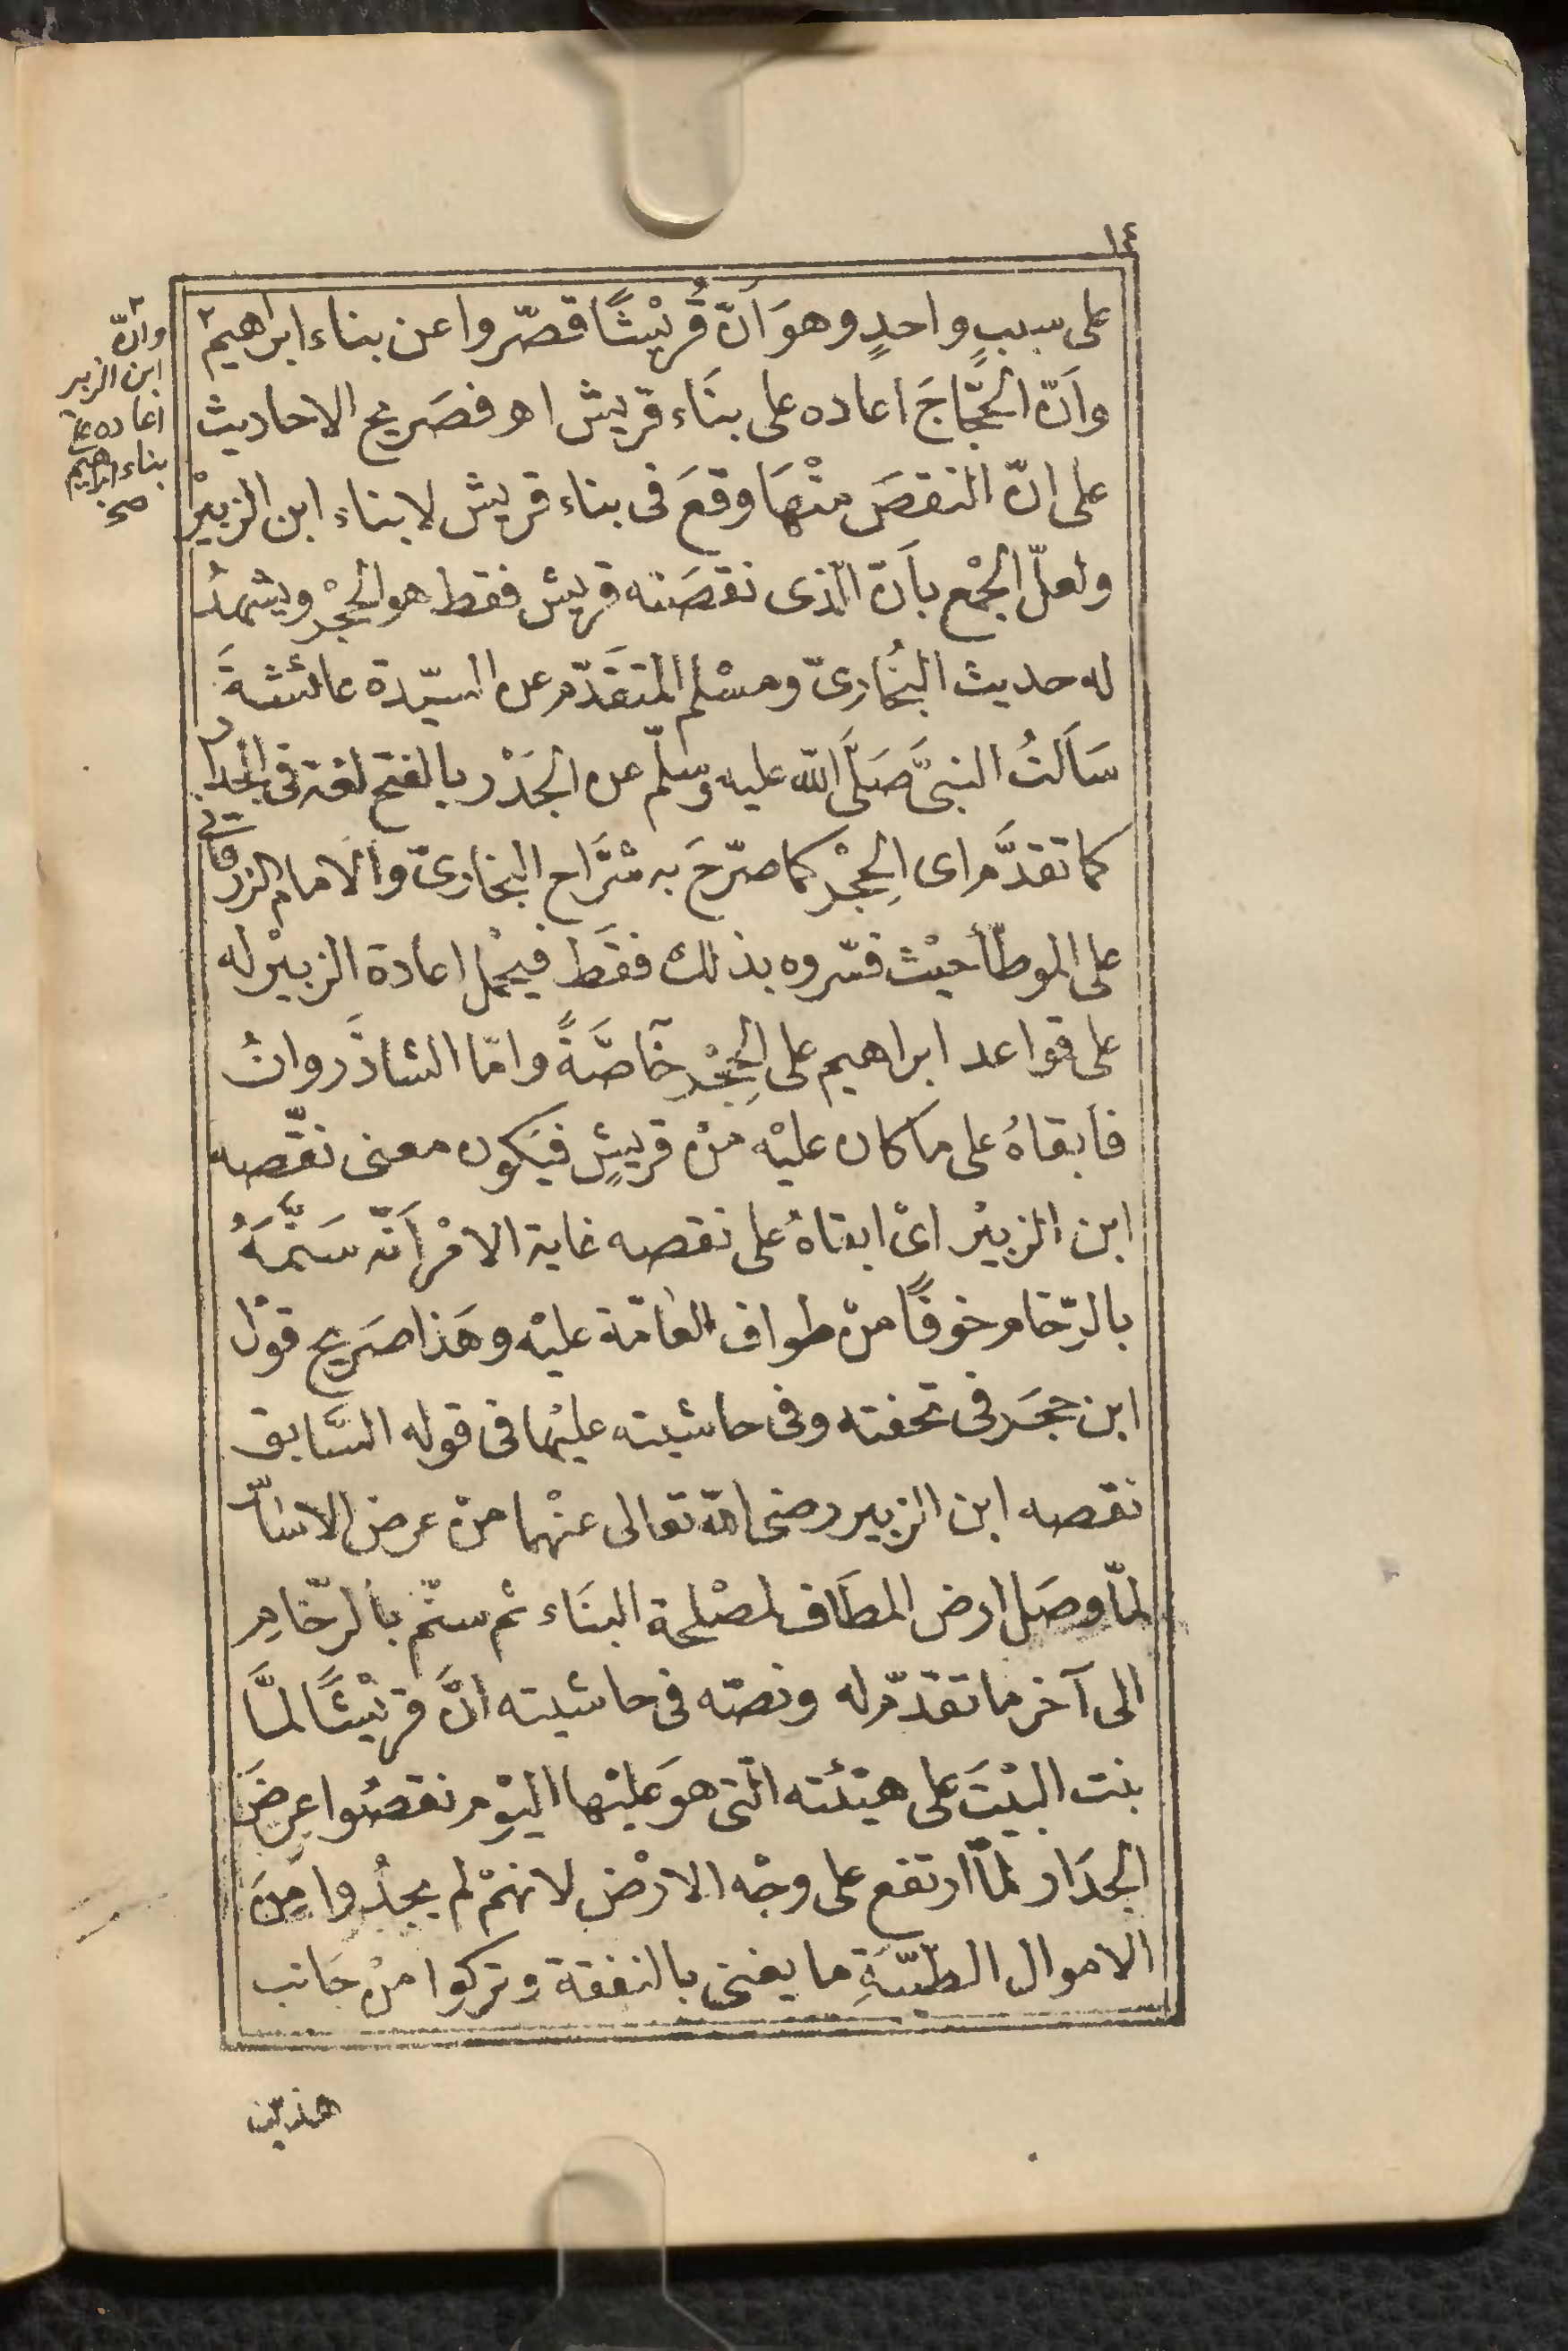 ١٤
على سببٍ واحدٍ وهوَ اَنّ قُرَيْشًا قصّروا عن بناء ابراهيم ٢
واَنّ الحجَّاجَ اعاده على بنَاء قريش اهـ فصَريح الاحاديث
على انّ النقصَ منْهَا وقعَ فى بناء قريش لا بناء ابن الزبيْر
ولعلّ الجمْع باَنّ الّذى نقصَته قريش فقط هو الحِجْر ويشهدُ
له حديث البُخارىّ ومسْلم المتقَدّم عن السيّدة عائشةَ
سَاَلتُ النبىَّ صَلَّى الله عليه وسلّم عن الجَدْر بالفتح لغة فى الجدار
كما تقدَّم اى الِحجْر كما صرّحَ به شرَّاح البخارىّ والامام الزرقانى
على الموطّأ حيْث فسّروه بذلك فقَط فيحْمل اعادة الزبيْر له
على قواعد ابراهيم على الحِجْر خاصَّةً وامّا الشاذَروانُ
فابقاهُ على ما كان عليْه منْ قريشٍ فيَكون معنى نقّصه
ابن الزبيْر اىْ ابقاهُ على نقصه غاية الامْر اَنّه سَنَّمَهُ
بالرِّخام خوفًا منْ طواف العَامّة عليْه وهَذا صَريح قوْل
ابن حجَر فى تحفته وفى حاشيته عليْها فى قوله السَّابق
نقصه ابن الزبير رضى الله تعالى عنْهما منْ عرض الاسَاس
لمّا وصَل ارض المطَاف لمصْلحة البنَاء ثم سنّم بالرّخام
الى آخر ما تقدّم له ونصّه فى حاشيته انَّ قريْشًا لمَّا
بنت البيْتَ على هيْئته الّتى هوَ عليْها اليوْم نقصُوا عرضَ
الجدَار لمّا ارتفع على وجْه الارْض لانهمْ لم يجدُوا منَ
الاموال الطيّبَةِ ما يفى بالنفقة وتركوا منْ جَانب
هذيْن
٢
وانّ
ابن الزبير
اعاده على
بناء ابراهيم
صح